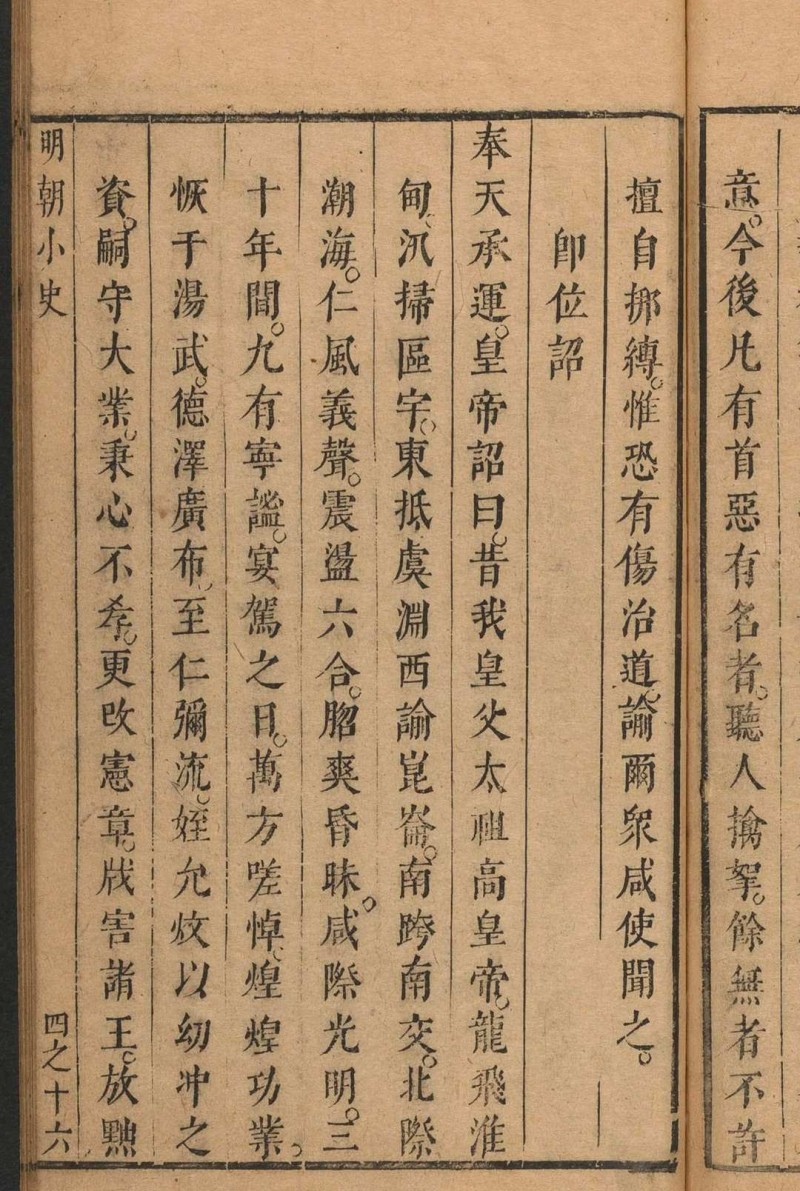 意。今後凡有首惡有名者。聽人擒拏。餘無者不許
擅自挷縛。惟恐有傷治道。諭爾衆咸使聞之。
卽位詔
奉天承運。皇帝詔曰。昔我皇父太祖高皇帝。龍飛淮
甸。汛掃區宇。東抵虞淵西諭崑崙。南跨南交。北際
潮海。仁風義聲。震盪六合。䏚爽昏昧。咸際光明。三
十年間。九有寧謐。宴駕之日。萬方嗟悼。煌煌功業。
恢于湯武。德澤廣布。至仁彌流。姪允炆以幼冲之
資。嗣守大業。秉心不孝。更改憲章。戕害諸王。放黜
明朝小史
四之十六